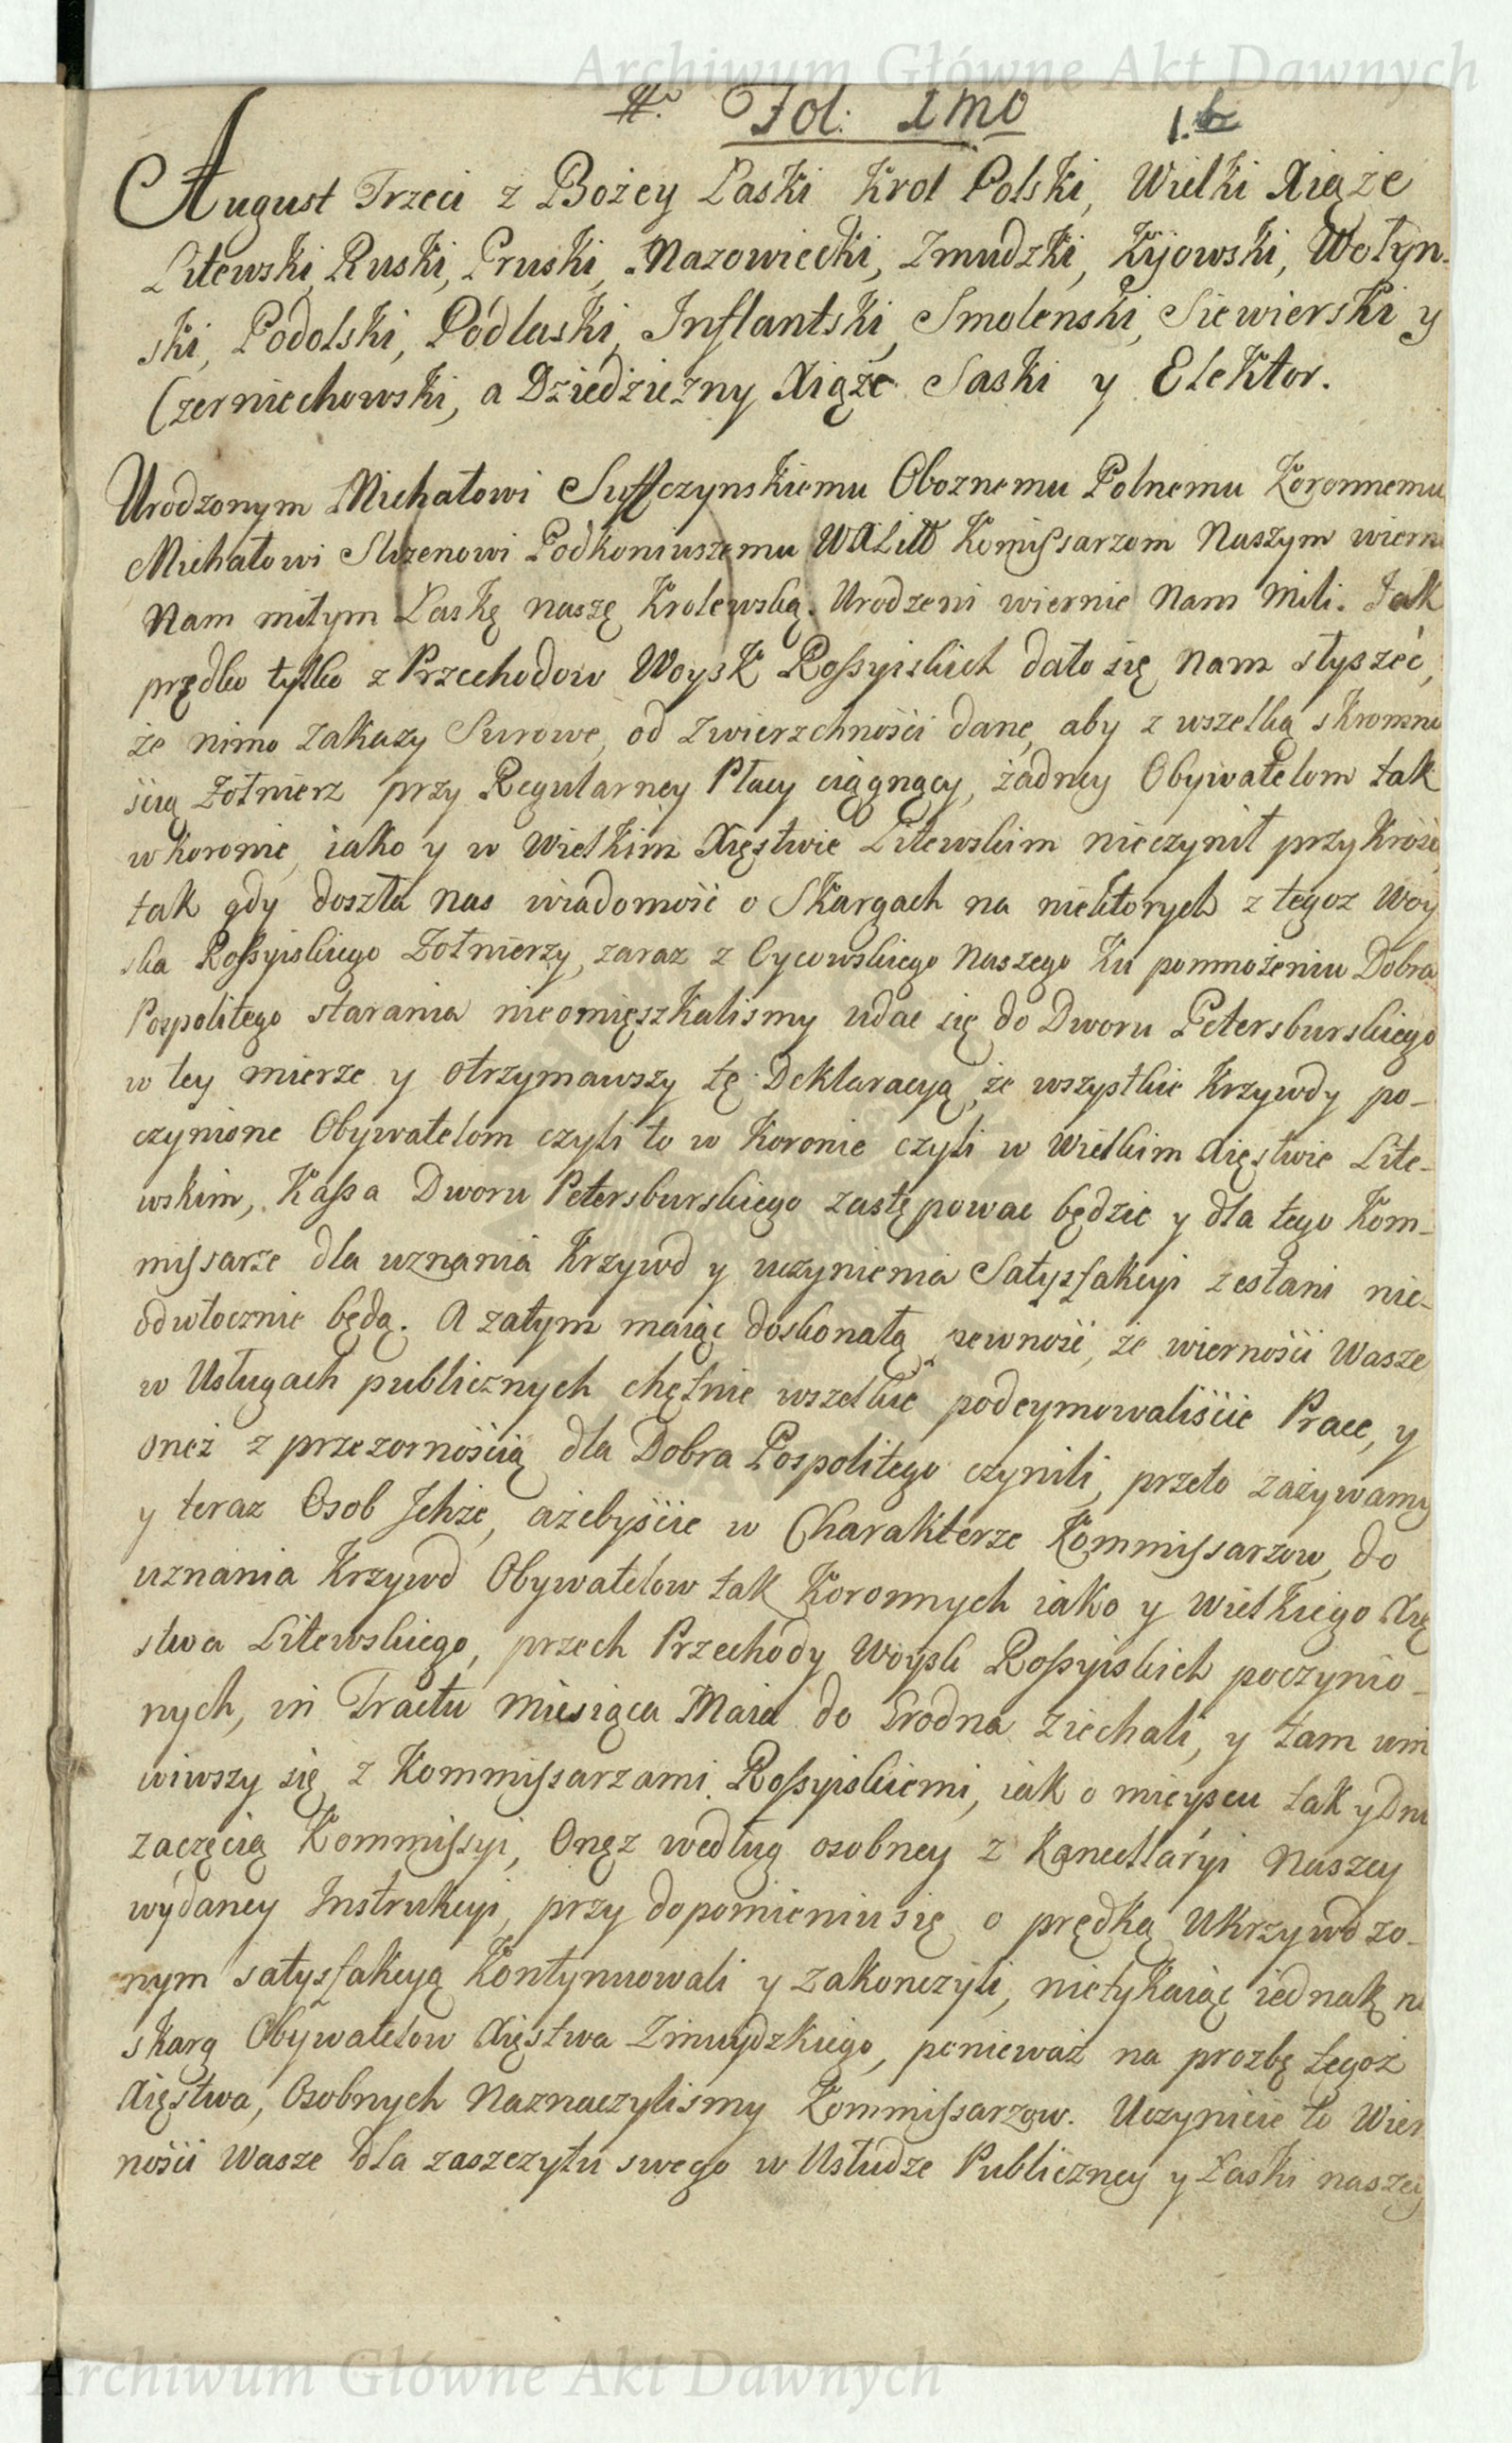 Archiwum Główne Akt Dawnych
#. Fol: 1mo 1.
August Trzeci z Bożey Łaski Krol Polski, Wielki Xiąże
Litewski, Ruski, Pruski, Mazowiecki, Zmudzki, Kijowski, Wołyn-
ski, Podolski, Podlaski, Inflantski, Smolenski, Siewierski y
Czerniechowski, a Dziedziczny Xiąże Saski y Elektor.
Urodzonym Michałowi Suffczynskiemu Oboznemu Polnemu Koronnemu
Michałowi Slizenowi Podkoniuszemu WXLitt Komissarzom Naszym wiern
Nam miłym Łaskę naszę Krolewską. Urodzeni wiernie Nam Mili. Jak
prędko tylko z Przechodow Woysk Rossyiskich dało się Nam słyszeć,
że nimo zakazy Surowe, od Zwierzchności dane, aby z wszelką skromno
ścią Żołnierz przy Regularney Płacy ciągnący, żadney Obywatelom tak
w Koronie, iako y w Wielkim Xięstwie Litewskim nieczynił przykrości
tak gdy doszła nas wiadomość o Skargach na niektorych z tegoz Woy
ska Rossyiskiego Żołnierzy, zaraz z Oycowskiego Naszego ku pomnożeniu Dobra
Pospolitego starania nieomięszkalismy udac się do Dworu Petersburskiego
w tey mierze y otrzymawszy tę Deklaracyą, że wszystkie Krzywdy po-
czynione Obywatelom czyli to w Koronie czyli w Wielkim Xięstwie Lite-
wskim, Kassa Dworu Petersburskiego zastępowac będzie y dla tego Kom-
missarze dla uznania Krzywd y uczynienia Satysfakcyi zesłani nie-
odwłocznie będą. A zatym maiąc doskonałą pewność, że wierności Wasze
w Usługach publicznych chętnie wszelkie podeymowaliście Prace, y
oneż z przezornością dla Dobra Pospolitego czynili, przeto zażywamy
y teraz Osob Ichże, ażebyście w Charakterze Kommissarzow, do
uznania Krzywd Obywatelow tak Koronnych iako y Wielkiego Xię
stwa Litewskiego, przech Przechody Woysk Rossyiskich poczynio-
nych, in Tractu Miesiąca Maia do Grodna Ziechali, y tam um
wiwszy się z Kommissarzami Rossyiskiemi, iak o mieyscu tak y Dni
zaczęcia Kommissyi, Onęz według osobney z Kancellaryi Naszey
wydaney Instrukcyi, przy dopomieniu się o prędką Ukrzywdzo-
nym satysfakcyą Kontynuowali y zakonczyli, nietykaiąc iednak
skarg Obywatelow Xięstwa Zmuydzkiego, ponieważ na prozbę tegoż
Xięstwa, Osobnych Naznaczylismy Kommissarzow. Uczynicie to Wier
ności Wasze dla zaszczytu swego w Usłudze Publiczney y Łaski naszey
Archiwum Główne Akt Dawnych